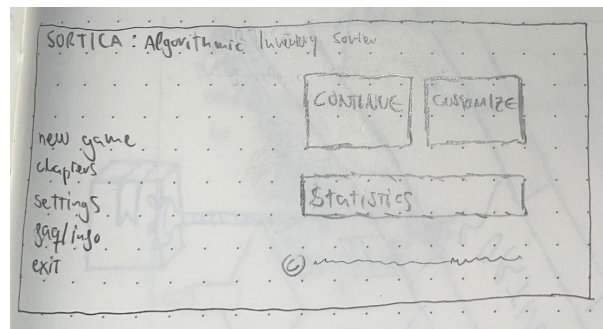 SORTICA: Algorithmic Inventory Sorter
CONTINUE
CUSTOMIZE
new game
chapters
settings
faq/info
exit
Statistics
©